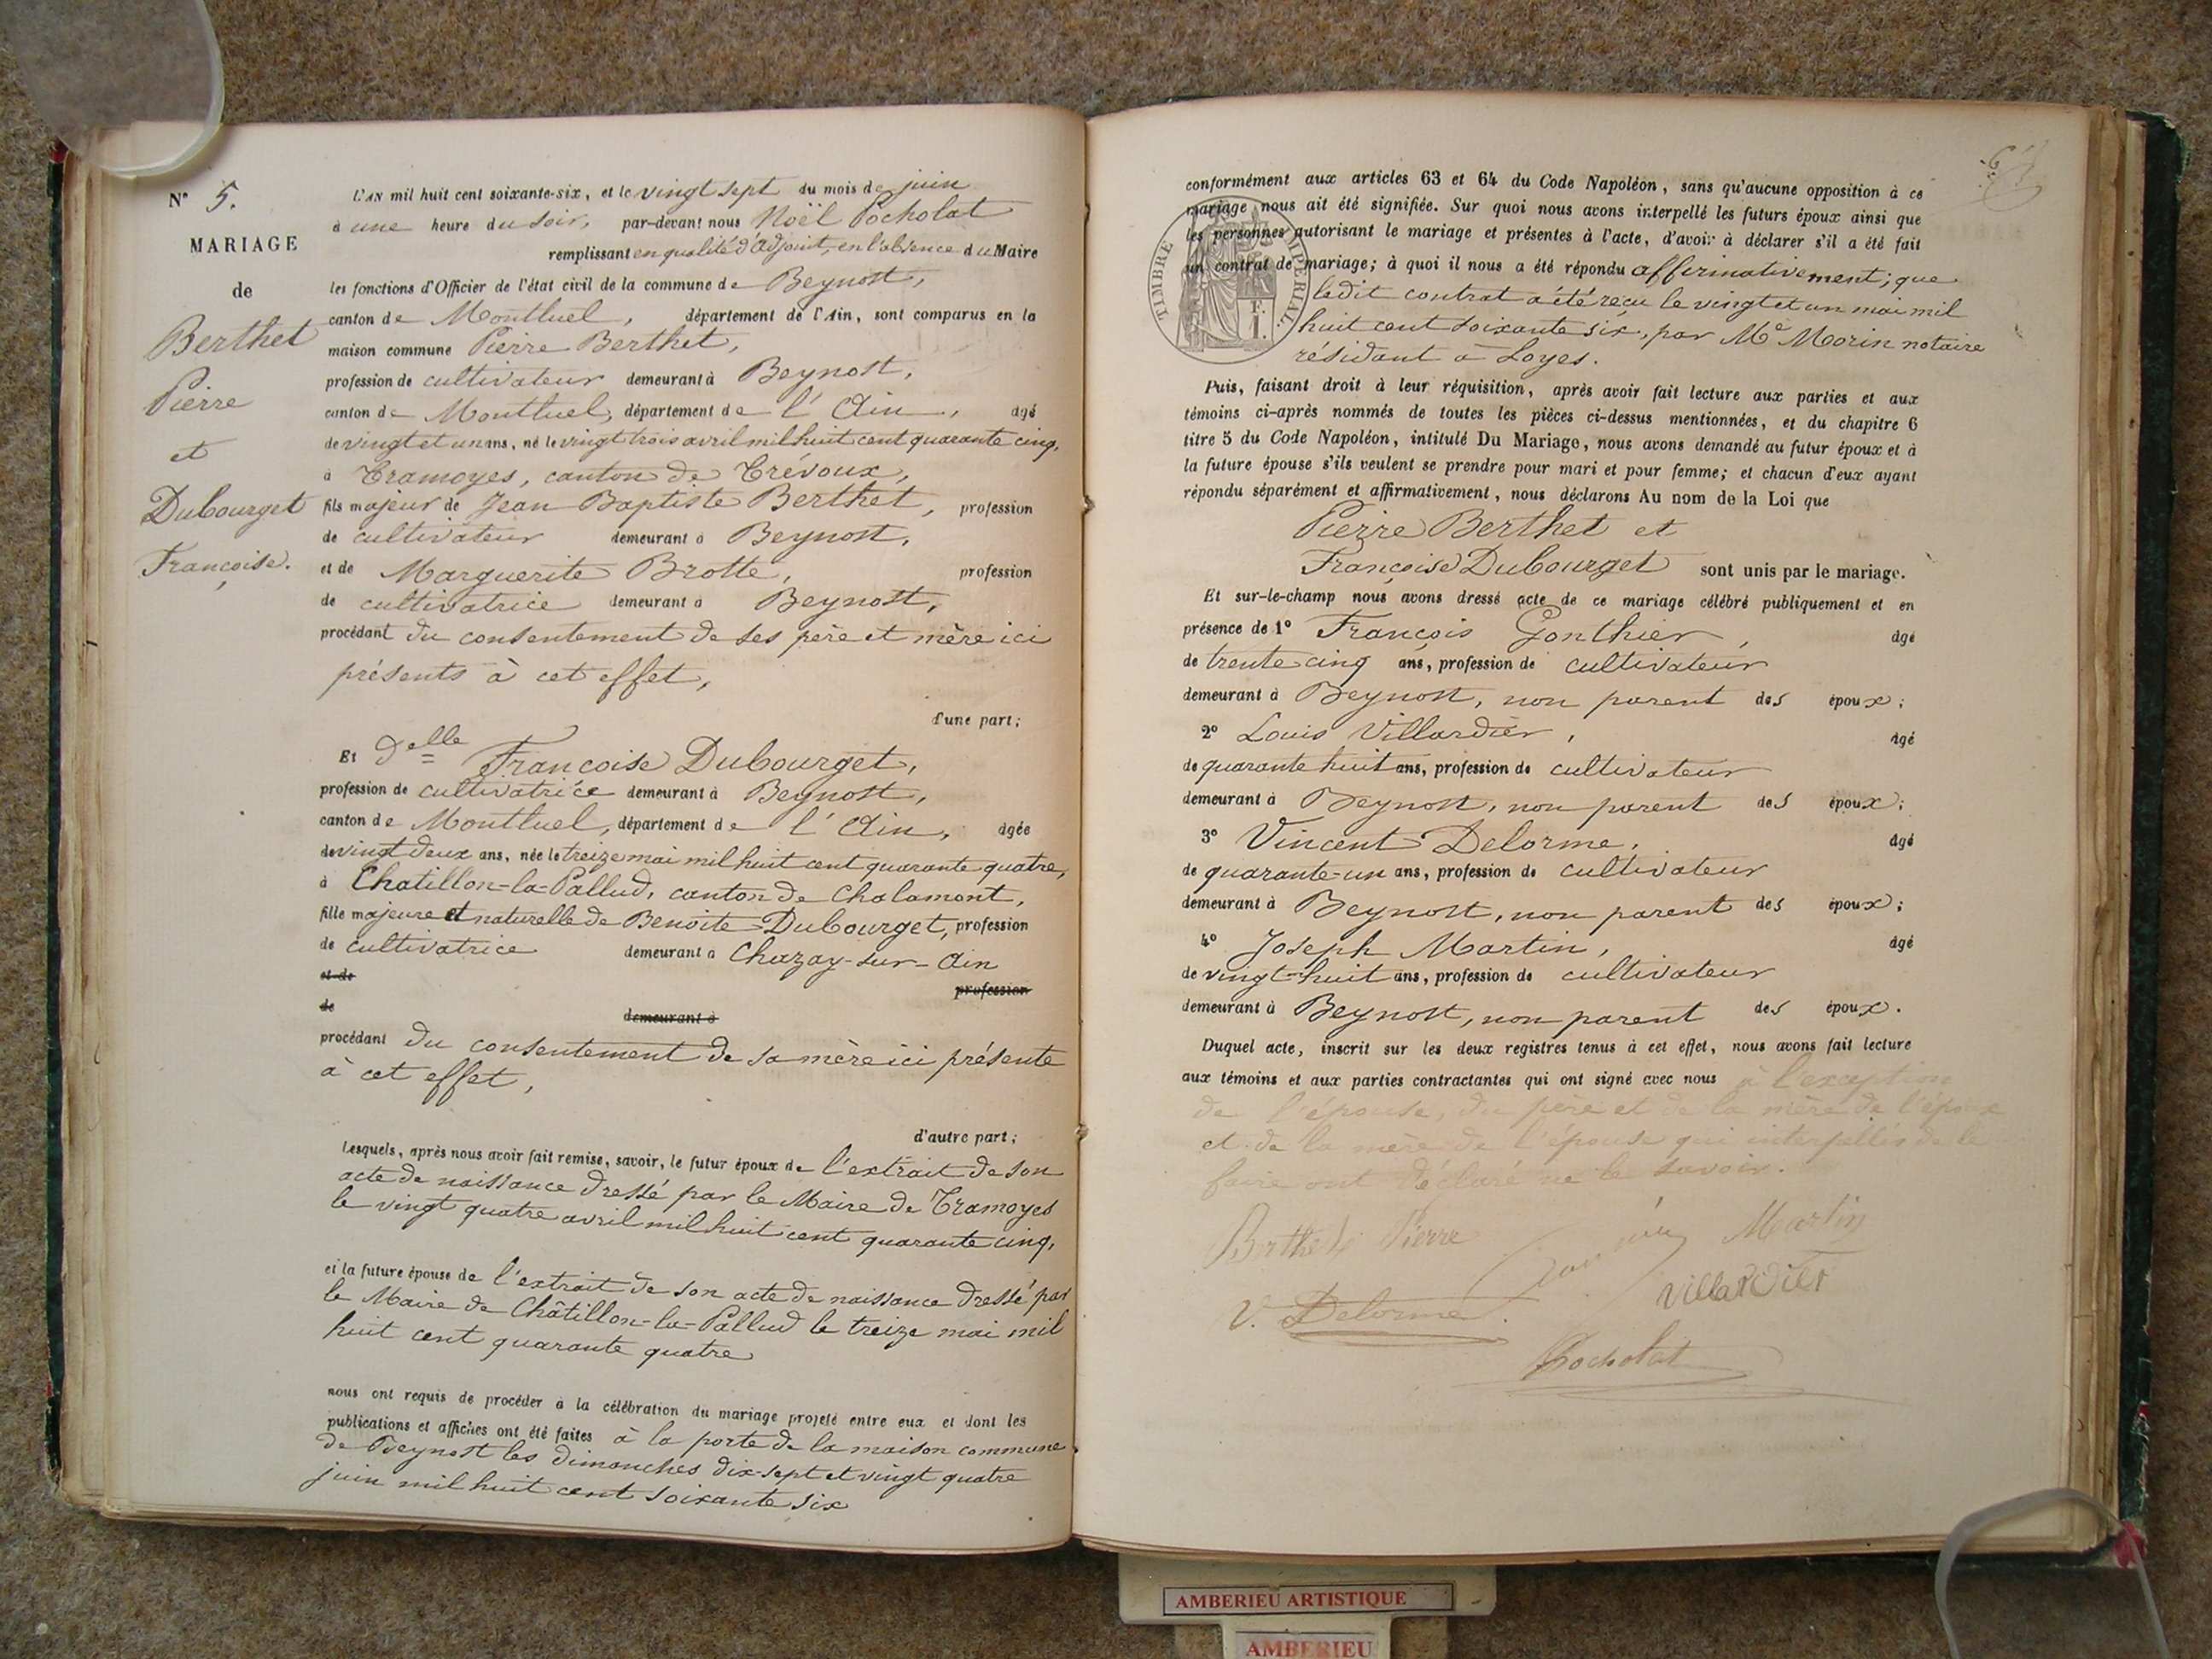 N° 5.
MARIAGE
de
Berthet
Pierre
et
Dubourget
Françoise.
L'AN mil huit cent soixante-six, et le vingt sept du mois de juin
à une heure du soir, par-devant nous Noël Pocholat
remplissant en qualité d'adjoint, en l'absence du Maire
les fonctions d'Officier de l'état civil de la commune de Beynost,
canton de Montluel, département de l'Ain, sont comparus en la
maison commune Pierre Berthet,
profession de cultivateur demeurant à Beynost,
canton de Montluel, département de l'Ain, âgé
de vingt et un ans, né le vingt trois avril mil huit cent quarante cinq,
à Tramoyes, canton de Trévoux,
fils majeur de Jean Baptiste Berthet, profession
de cultivateur demeurant à Beynost,
et de Marguerite Brotte, profession
de cultivatrice demeurant à Beynost,
procédant du consentement de ses père et mère ici
présents à cet effet,
d'une part;
Et Delle Françoise Dubourget,
profession de cultivatrice demeurant à Beynost,
canton de Montluel, département de l'Ain, âgée
de vingt deux ans, née le treize mai mil huit cent quarante quatre,
à Chatillon-la-Pallud, canton de Chalamont,
fille majeure et naturelle de Benoite Dubourget, profession
de cultivatrice demeurant à Chazay-sur-Ain
et de
profession
de
demeurant à
procédant du consentement de sa mère ici présente
à cet effet,
d'autre part;
Lesquels, après nous avoir fait remise, savoir, le futur époux de l'extrait de son
acte de naissance dressé par le Maire de Tramoyes
le vingt quatre avril mil huit cent quarante cinq,
et la future épouse de l'extrait de son acte de naissance dressé par
le Maire de Châtillon-la-Pallud le treize mai mil
huit cent quarante quatre
nous ont requis de procéder à la célébration du mariage projeté entre eux et dont les
publications et affiches ont été faites à la porte de la maison commune
de Beynost les dimanches dix-sept et vingt quatre
juin mil huit cent soixante six
conformément aux articles 63 et 64 du Code Napoléon, sans qu'aucune opposition à ce
mariage nous ait été signifiée. Sur quoi nous avons interpellé les futurs époux ainsi que
les personnes autorisant le mariage et présentes à l'acte, d'avoir à déclarer s'il a été fait
un contrat de mariage; à quoi il nous a été répondu affirmativement; que
ledit contrat a été reçu le vingt et un mai mil
huit cent soixante six, par Me Morin notaire
résidant à Loyes.
TIMBRE IMPÉRIAL.
F.
1.
Puis, faisant droit à leur réquisition, après avoir fait lecture aux parties et aux
témoins ci-après nommés de toutes les pièces ci-dessus mentionnées, et du chapitre 6
titre 5 du Code Napoléon, intitulé Du Mariage, nous avons demandé au futur époux et à
la future épouse s'ils veulent se prendre pour mari et pour femme; et chacun d'eux ayant
répondu séparément et affirmativement, nous déclarons Au nom de la Loi que
Pierre Berthet et
Françoise Dubourget sont unis par le mariage.
Et sur-le-champ nous avons dressé acte de ce mariage célébré publiquement et en
présence de 1° François Gonthier, âgé
de trente cinq ans, profession de cultivateur
demeurant à Beynost, non parent des époux;
2° Louis Villardier, âgé
de quarante huit ans, profession de cultivateur
demeurant à Beynost, non parent des époux;
3° Vincent Delorme, âgé
de quarante-un ans, profession de cultivateur
demeurant à Beynost, non parent des époux;
4° Joseph Martin, âgé
de vingt-huit ans, profession de cultivateur
demeurant à Beynost, non parent des époux.
Duquel acte, inscrit sur les deux registres tenus à cet effet, nous avons fait lecture
aux témoins et aux parties contractantes qui ont signé avec nous à l'exception
de l'épouse, du père et de la mère de l'époux
et de la mère de l'épouse qui interpellés de le
faire ont déclaré ne le savoir.
Berthet Pierre
Martin
V. Delorme.
villardier
Pocholat
AMBERIEU ARTISTIQUE
AMBERIEU